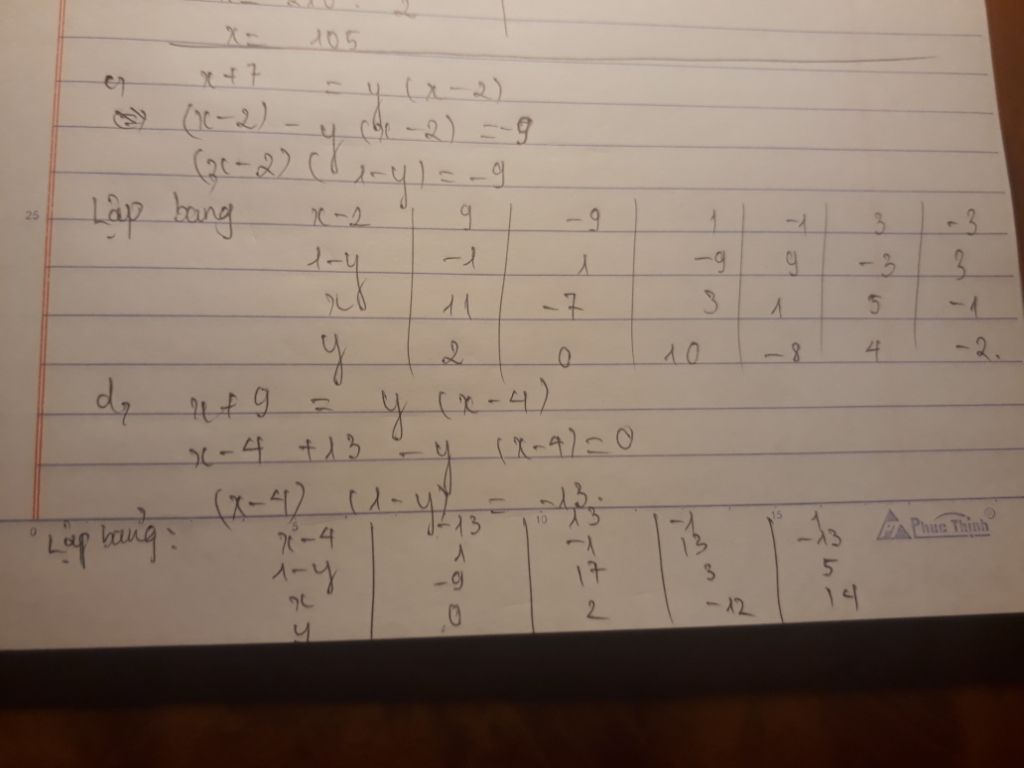 x = 210 : 2
x = 105
c, x + 7 = y (x - 2)
<=> (x-2) - y (x-2) = -9
(x-2) ( 1-y) = -9
25
Lập bảng x-2 | 9 | -9 | 1 | -1 | 3 | -3
1-y | -1 | 1 | -9 | 9 | -3 | 3
x | 11 | -7 | 3 | 1 | 5 | -1
y | 2 | 0 | 10 | -8 | 4 | -2.
d, x + 9 = y (x-4)
x-4 +13 - y (x-4) = 0
(x-4) (1-y) = -13.
0 5 10 15
Lập bảng: x-4 | -13 | 13 | -1 | 1
Phúc Thịnh
1-y | 1 | -1 | 13 | -13
x | -9 | 17 | 3 | 5
y | 0 | 2 | -12 | 14